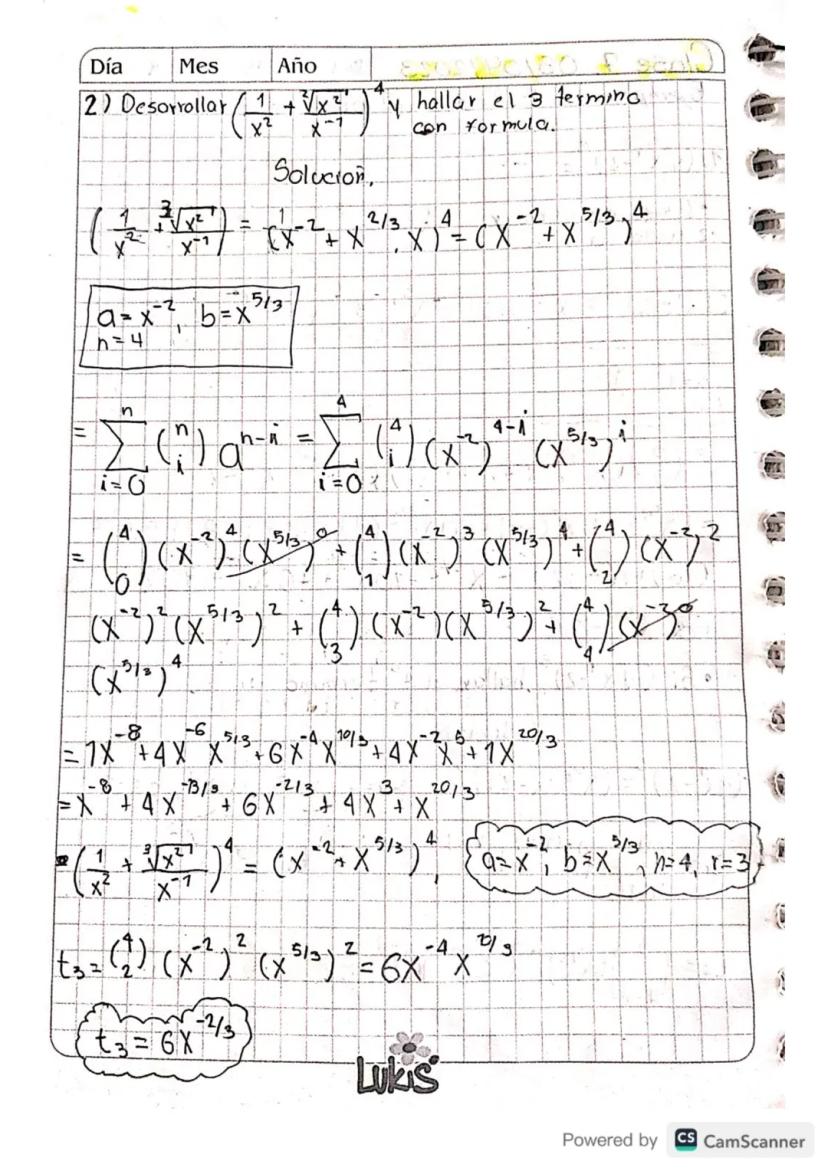 Día Mes Año
2) Desorrollar (1/x² + ∛x²/x⁻¹)⁴ y hallar el 3 termino
con formula.
Solucion.
(1/x² + ∛x²/x⁻¹) = (x⁻² + x^2/3 . x)⁴ = (x⁻² + x^5/3)⁴
a = x⁻², b = x^5/3
n = 4
= Σ_{i=0}^{n} (n i) a^{n-i} = Σ_{i=0}^{4} (4 i) (x⁻²)^{4-i} (x^5/3)^i
= (4 0) (x⁻²)⁴ (x^5/3)⁰ + (4 1) (x⁻²)³ (x^5/3)⁴ + (4 2) (x⁻²)²
(x⁻²)² (x^5/3)² + (4 3) (x⁻²) (x^5/3)² + (4 4) (x⁻²)⁰
(x^5/3)⁴
= 1x⁻⁸ + 4x⁻⁶ x^5/3 + 6x⁻⁴ x^10/3 + 4x⁻² x⁵ + 1x^20/3
= x⁻⁸ + 4x^-13/3 + 6x^-2/3 + 4x³ + x^20/3
(1/x² + ∛x²/x⁻¹)⁴ = (x⁻² + x^5/3)⁴, a = x⁻², b = x^5/3, n = 4, r = 3
t₃ = (4 2) (x⁻²)² (x^5/3)² = 6x⁻⁴ x^10/3
t₃ = 6x^-2/3
LUKIS
Powered by CS CamScanner